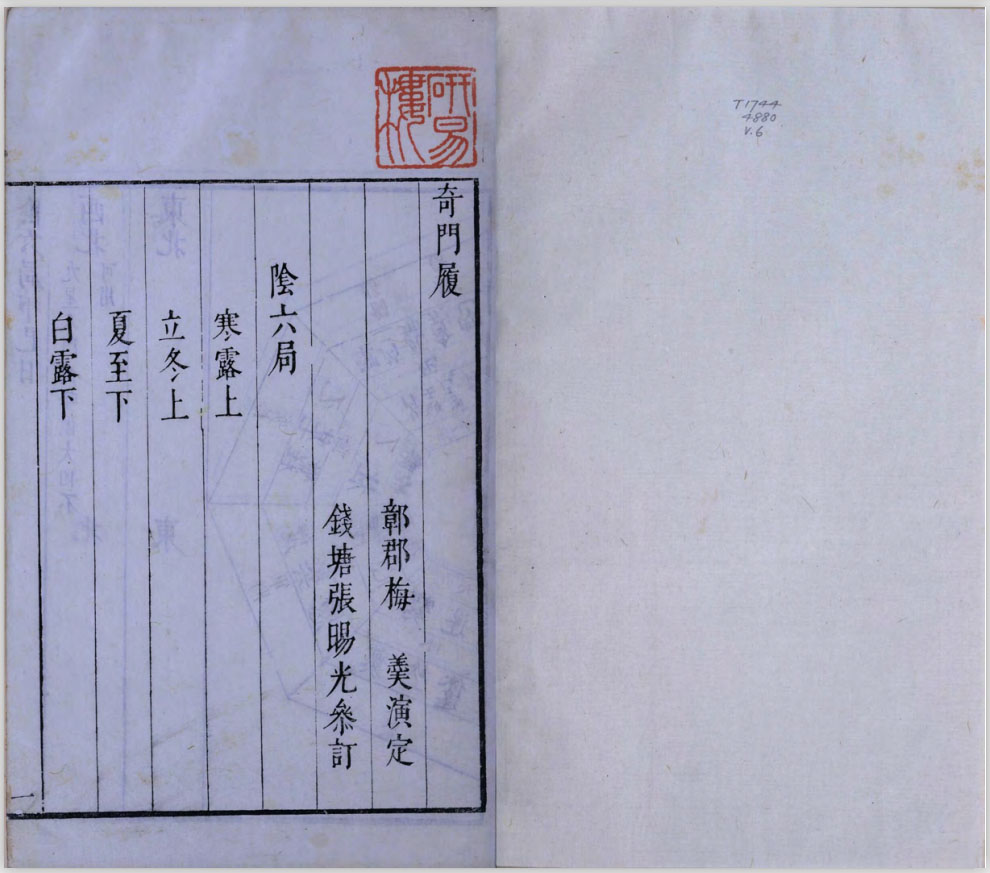 T1744
4880
V.6
研易樓
奇門履
鄣郡梅 羹演定
錢塘張暘光叅訂
陰六局
寒露上
立冬上
夏至下
白露下
一